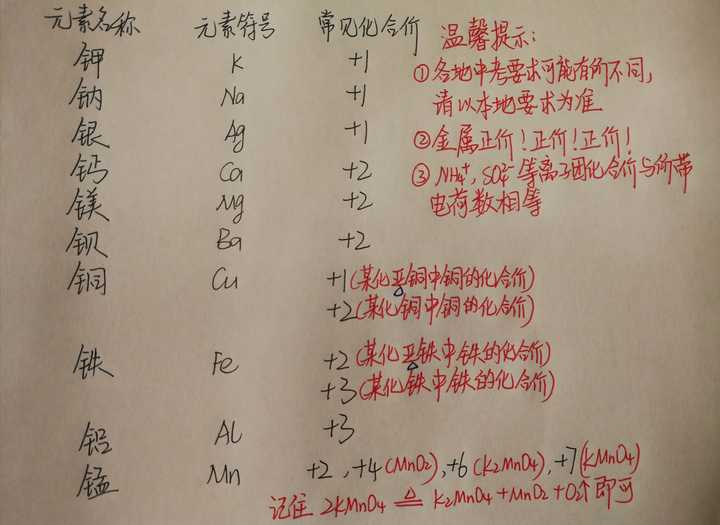 元素名称 元素符号 常见化合价
钾 K +1
钠 Na +1
银 Ag +1
钙 Ca +2
镁 Mg +2
钡 Ba +2
铜 Cu +1(某化亚铜中铜的化合价)
+2(某化铜中铜的化合价)
铁 Fe +2(某化亚铁中铁的化合价)
+3(某化铁中铁的化合价)
铝 Al +3
锰 Mn +2,+4(MnO₂),+6(K₂MnO₄),+7(KMnO₄)
记住 2KMnO₄ ≜ K₂MnO₄+MnO₂+O₂↑即可
温馨提示:
①各地中考要求可能有所不同,
请以本地要求为准
②金属正价!正价!正价!
③NH₄⁺,SO₄²⁻等离子团化合价与所带
电荷数相等